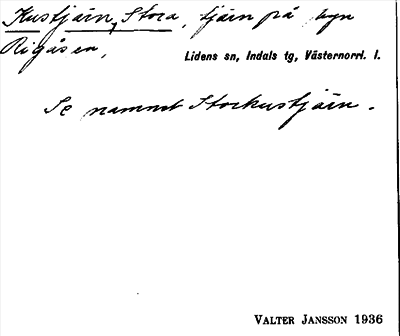 Kustjärn, Stora, tjärn på byn
Rigåsen,
Lidens sn, Indals tg, Västernorrl. l.
Se namnet Storkustjärn.
VALTER JANSSON 1936